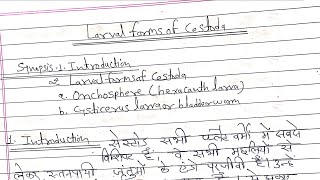 Larval forms of Cestoda
Synopsis. 1. Introduction
2. Larval forms of Cestoda
a. Onchosphere (hexacanth larva)
b. Cysticercus larva or bladder worm
1. Introduction सेस्टोड सभी परपोषी में सबसे
विशिष्ट है। वे सभी मछलियों से
लेकर स्तनपायी जंतुओं के परजीवी हैं। उनके